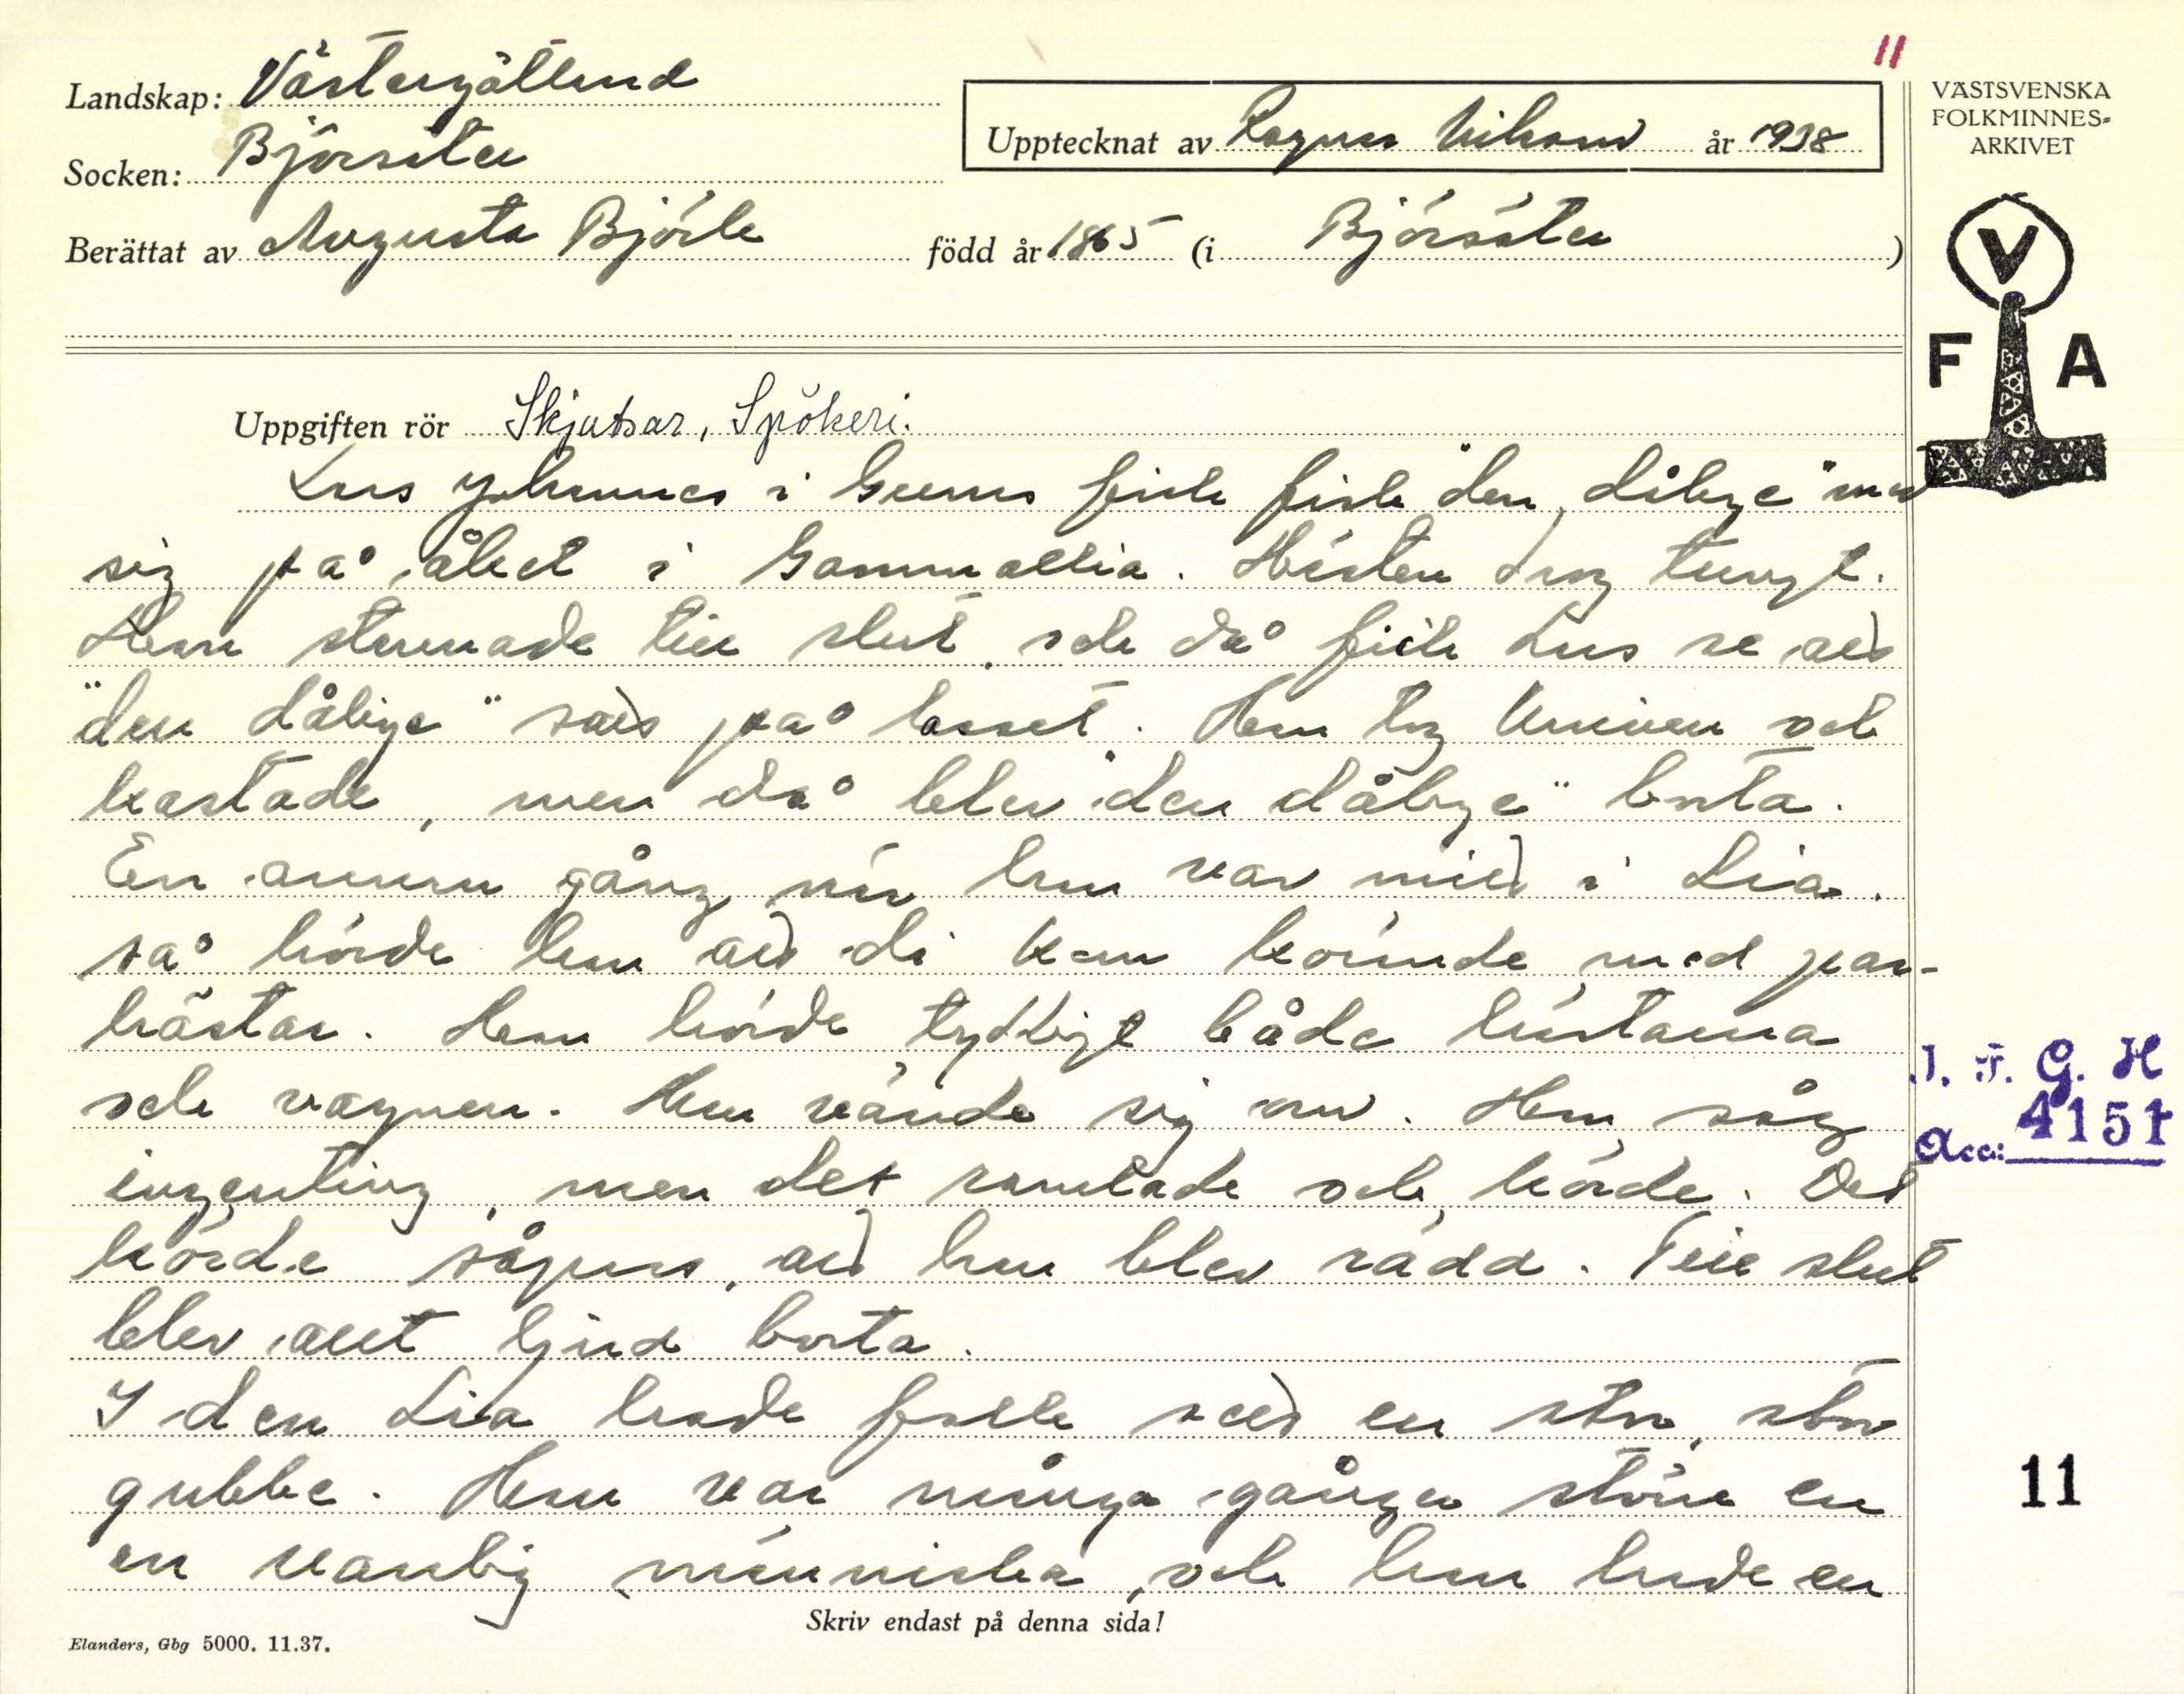 11
Landskap: Västergötland
Socken: Björsäter
Upptecknat av Ragnar Nilsson år 1938
VÄSTSVENSKA
FOLKMINNES-
ARKIVET
Berättat av Augusta Björk född år 1865 (i Björsäter)
V
F A
Uppgiften rör Skjutsar, Spökeri.
Lars Johannes i fick fick "den dålige" med
sig på åket i Gammallia. Hästen drog tungt.
Han stannade till slut, och då fick Lars se att
"den dålige" satt på lasset. Han tog kniven och
kastade, men då blev "den dålige" borta.
En annan gång när han var mitt i Lia.
så hörde han att di kom körande med par-
hästar. Han hörde tydligt både hästarna
och vagnen. Han vände sig om. Han såg
ingenting, men det ramlade och körde. Det
körde såpass, att han blev rädd. Till slut
blev allt ljud borta.
I den Lia hade folk sett en stor, stor
gubbe. Han var många gånger större en
en vanlig människa, och han hade en
I. F. G. H
Acc: 4151
11
Skriv endast på denna sida!
Elanders, Gbg 5000. 11.37.